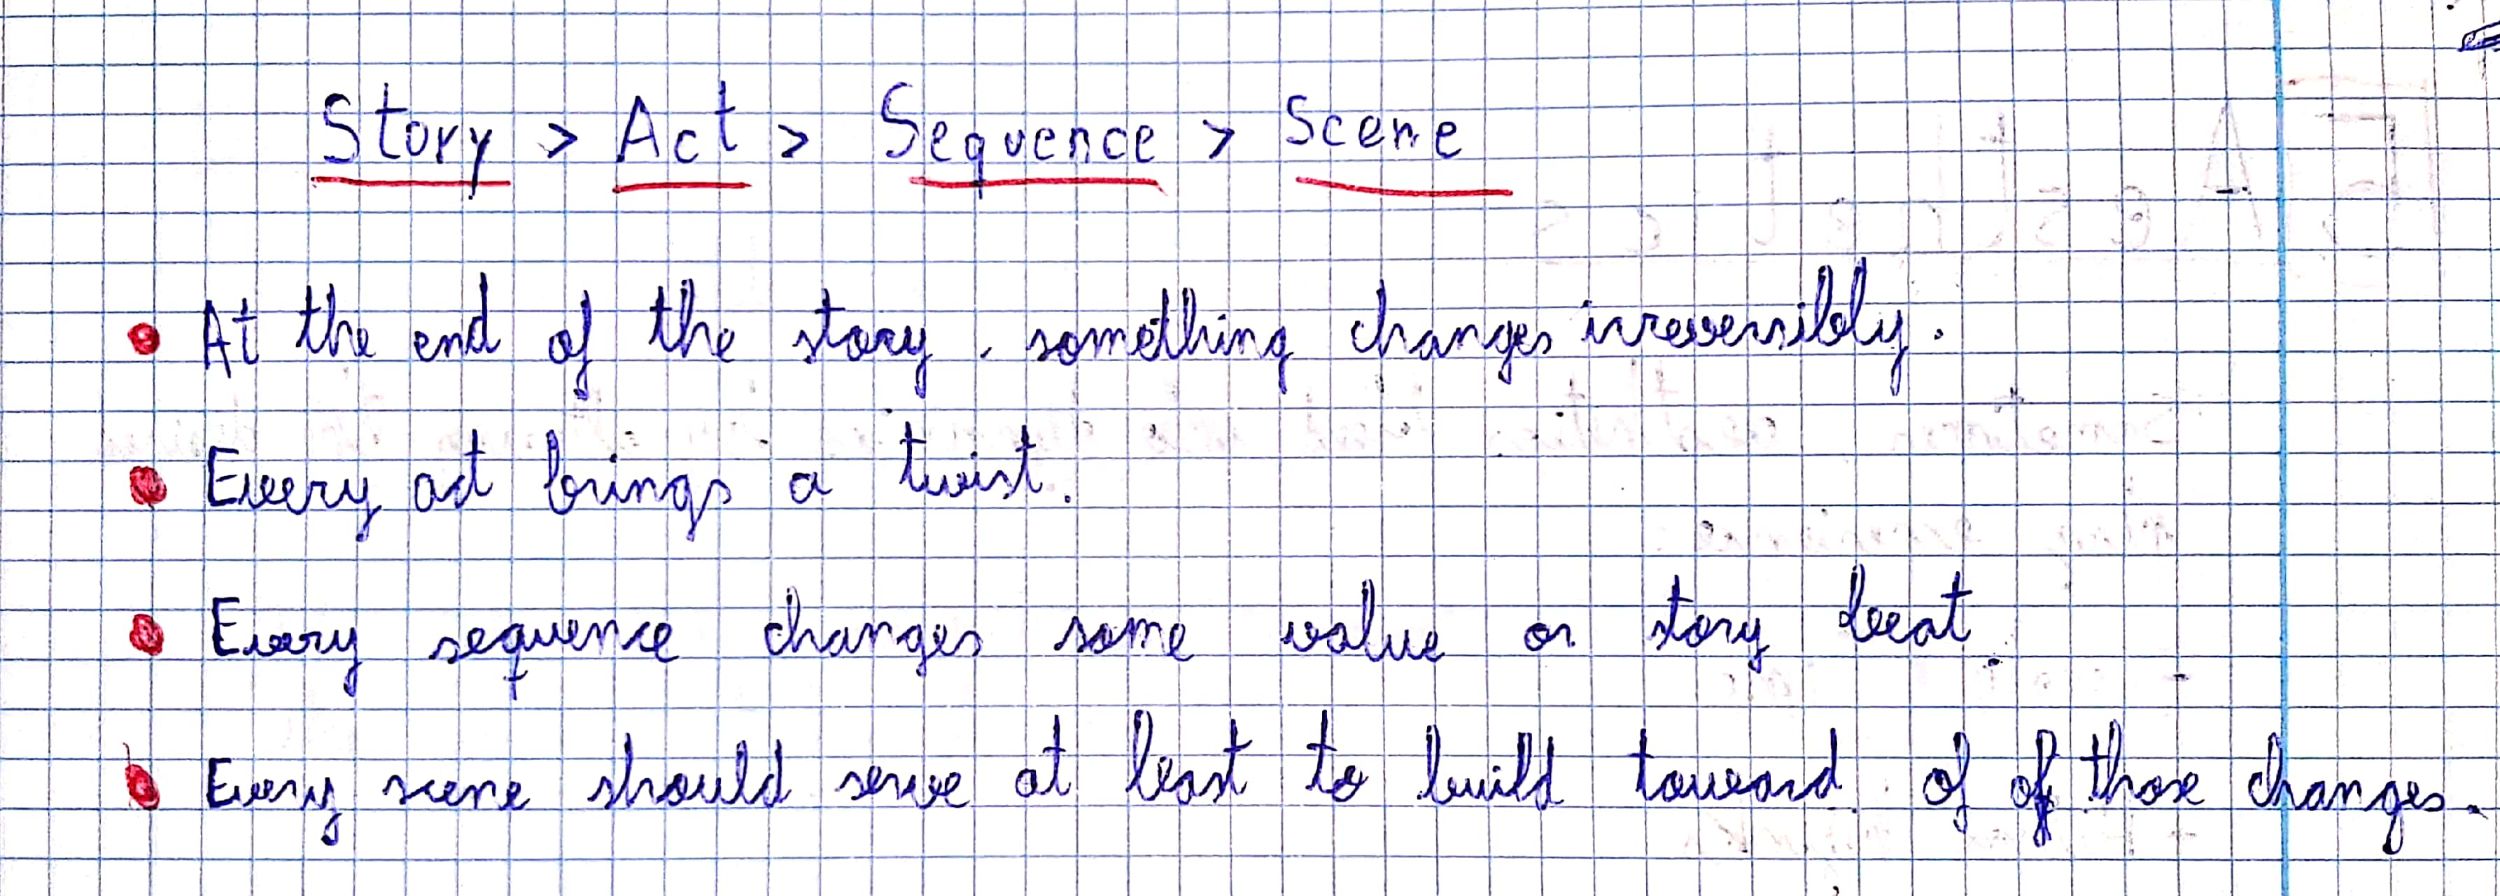 Story > Act > Sequence > Scene
• At the end of the story, something changes irreversibly.
• Every act brings a twist.
• Every sequence changes some value or story beat.
• Every scene should serve at least to build toward of of those changes.